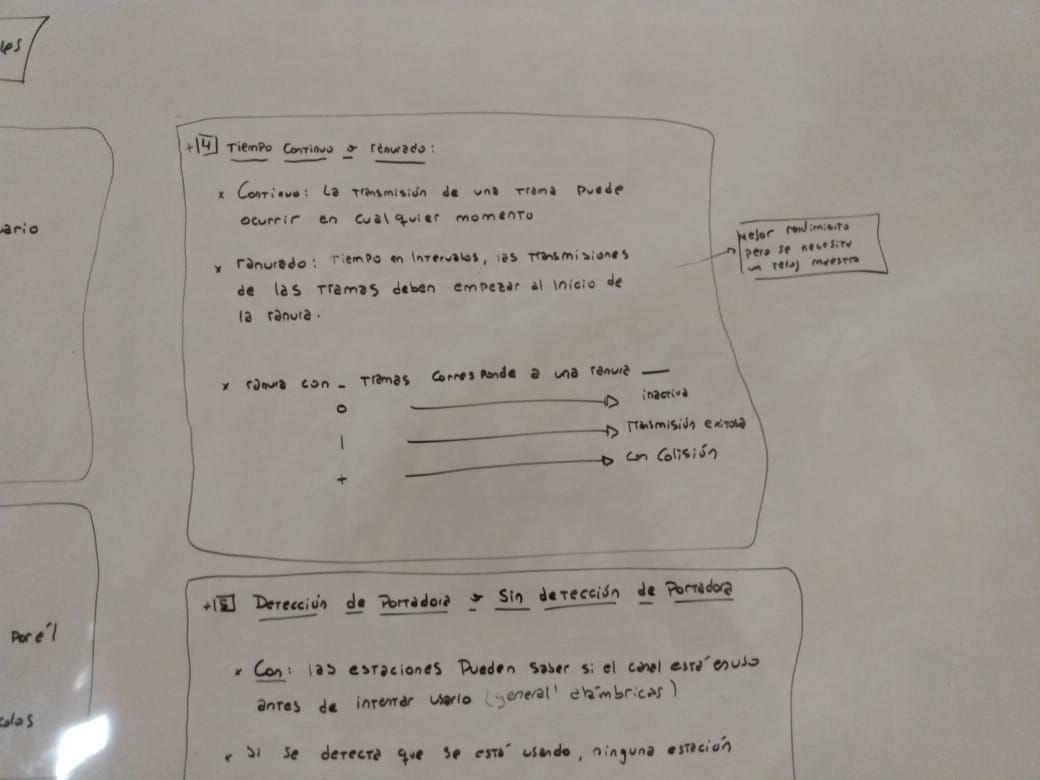 les
ario
+ 4 Tiempo Continuo o ranurado:
x Continuo: La transmisión de una trama puede
ocurrir en cualquier momento
x ranurado: Tiempo en Intervalos, las transmisiones
de las tramas deben empezar al inicio de
la ranura.
Mejor rendimiento
pero se necesita
un reloj maestro
x ranura con _ tramas corresponde a una ranura __
0 → inactiva
1 → Transmisión exitosa
+ → con Colisión
+ 5 Detección de Portadora o Sin detección de Portadora
x Con: las estaciones Pueden saber si el canal está en uso
antes de intentar usarlo (general' alámbricas)
x Si se detecta que se está usando, ninguna estación
por él
colos